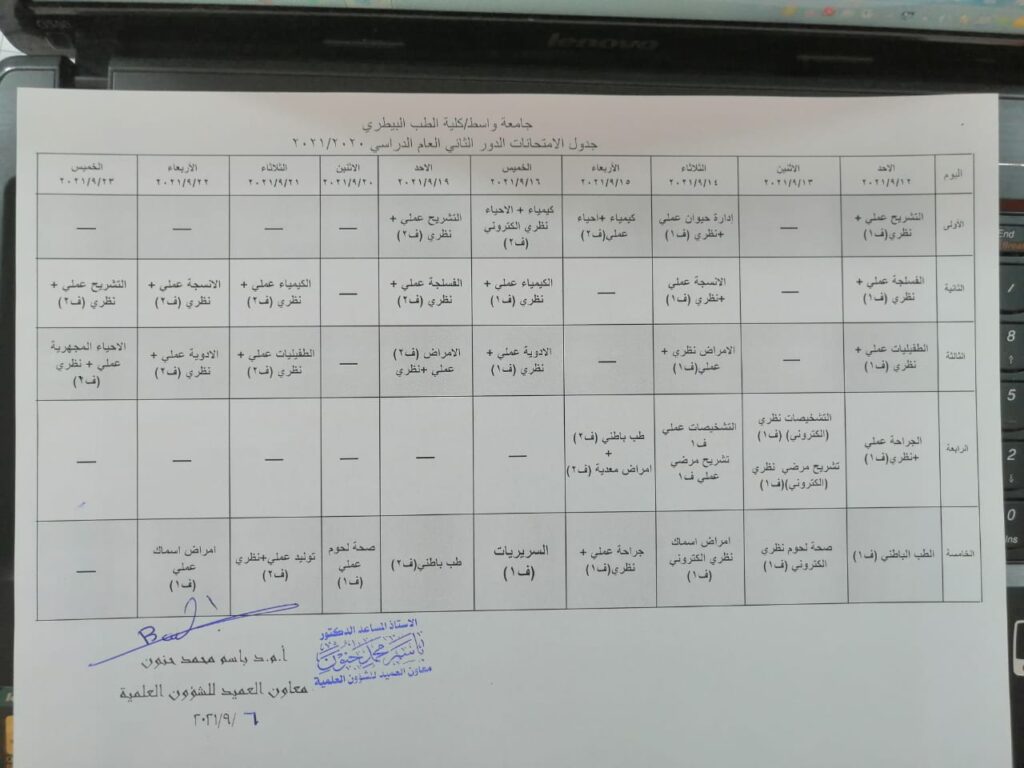 lenovo
جامعة واسط/كلية الطب البيطري
جدول الامتحانات الدور الثاني العام الدراسي ٢٠٢١/٢٠٢٠
اليوم
الاحد
٢٠٢١/٩/١٢
الاثنين
٢٠٢١/٩/١٣
الثلاثاء
٢٠٢١/٩/١٤
الأربعاء
٢٠٢١/٩/١٥
الخميس
٢٠٢١/٩/١٦
الاحد
٢٠٢١/٩/١٩
الاثنين
٢٠٢١/٩/٢٠
الثلاثاء
٢٠٢١/٩/٢١
الأربعاء
٢٠٢١/٩/٢٢
الخميس
٢٠٢١/٩/٢٣
الأولى
التشريح عملي +
نظري(ف١)
—
إدارة حيوان عملي
+نظري (ف١)
كيمياء +احياء
عملي(ف٢)
كيمياء + الاحياء
نظري الكتروني
(ف٢)
التشريح عملي +
نظري (ف٢)
—
—
—
—
الثانية
الفسلجة عملي +
نظري (ف١)
—
الانسجة عملي
+نظري (ف١)
—
الكيمياء عملي +
نظري (ف١)
الفسلجة عملي +
نظري (ف٢)
—
الكيمياء عملي +
نظري (ف٢)
الانسجة عملي +
نظري (ف٢)
التشريح عملي +
نظري (ف٢)
الثالثة
الطفيليات عملي +
نظري (ف١)
—
الامراض نظري +
عملي(ف١)
—
الادوية عملي +
نظري (ف١)
الامراض (ف٢)
عملي +نظري
—
الطفيليات عملي +
نظري (ف٢)
الادوية عملي +
نظري (ف٢)
الاحياء المجهرية
عملي + نظري
(ف٢)
الرابعة
الجراحة عملي
+نظري(ف١)
التشخيصات نظري
(الكتروني) (ف١)
تشريح مرضي نظري
(الكتروني)(ف١)
التشخيصات عملي
ف١
تشريح مرضي
عملي ف١
طب باطني (ف٢)
+
امراض معدية (ف٢)
—
—
—
—
—
—
الخامسة
الطب الباطني (ف١)
صحة لحوم نظري
الكتروني (ف١)
امراض اسماك
نظري الكتروني
(ف١)
جراحة عملي +
نظري(ف١)
السريريات
(ف١)
طب باطني(ف٢)
صحة لحوم
عملي
(ف١)
توليد عملي+نظري
(ف٢)
امراض اسماك
عملي
(ف١)
—
الاستاذ المساعد الدكتور
باسم محمد حنون
معاون العميد للشؤون العلمية
أ.م.د باسم محمد حنون
معاون العميد للشؤون العلمية
٢٠٢١/٩/ ٦
End
8
5
2
0
Ins